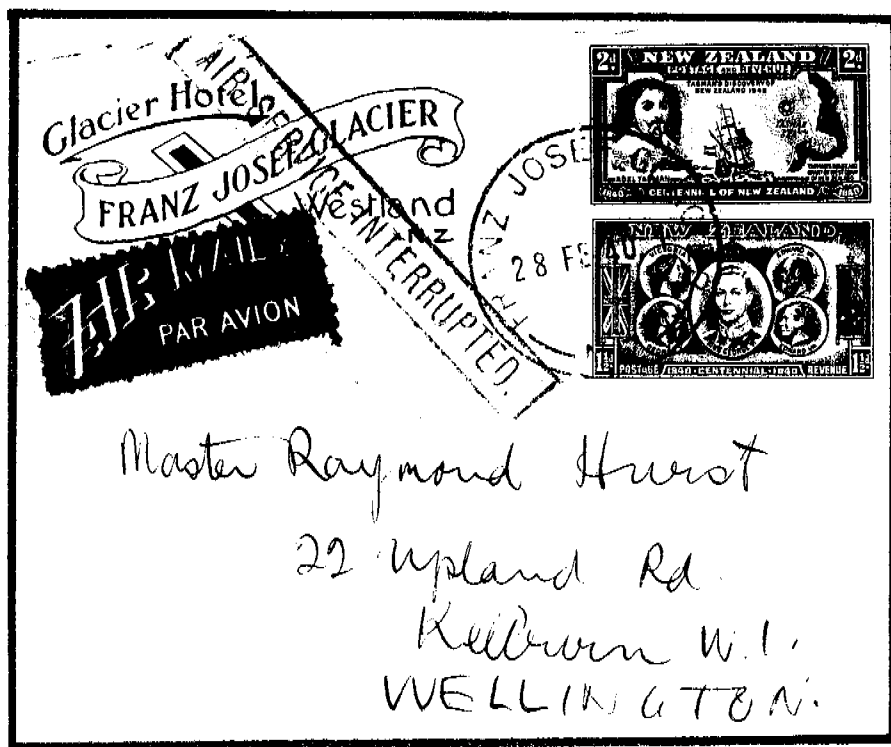 Glacier Hotel
FRANZ JOSEF GLACIER
Westland
NZ
AIR SERVICE INTERRUPTED.
AIR MAIL
PAR AVION
2d NEW ZEALAND 2d
POSTAGE AND REVENUE
TASMAN'S DISCOVERY OF
NEW ZEALAND 1642
ABEL TASMAN
1840 CENTENNIAL OF NEW ZEALAND 1940
FRANZ JOSEF
28 FE 40
NEW ZEALAND
VICTORIA
EDWARD VII
GEORGE V
EDWARD VIII
1½d POSTAGE 1840-CENTENNIAL-1940 REVENUE 1½d
Master Raymond Hurst
22 Upland Rd.
Kelburn W.1.
WELLINGTON.